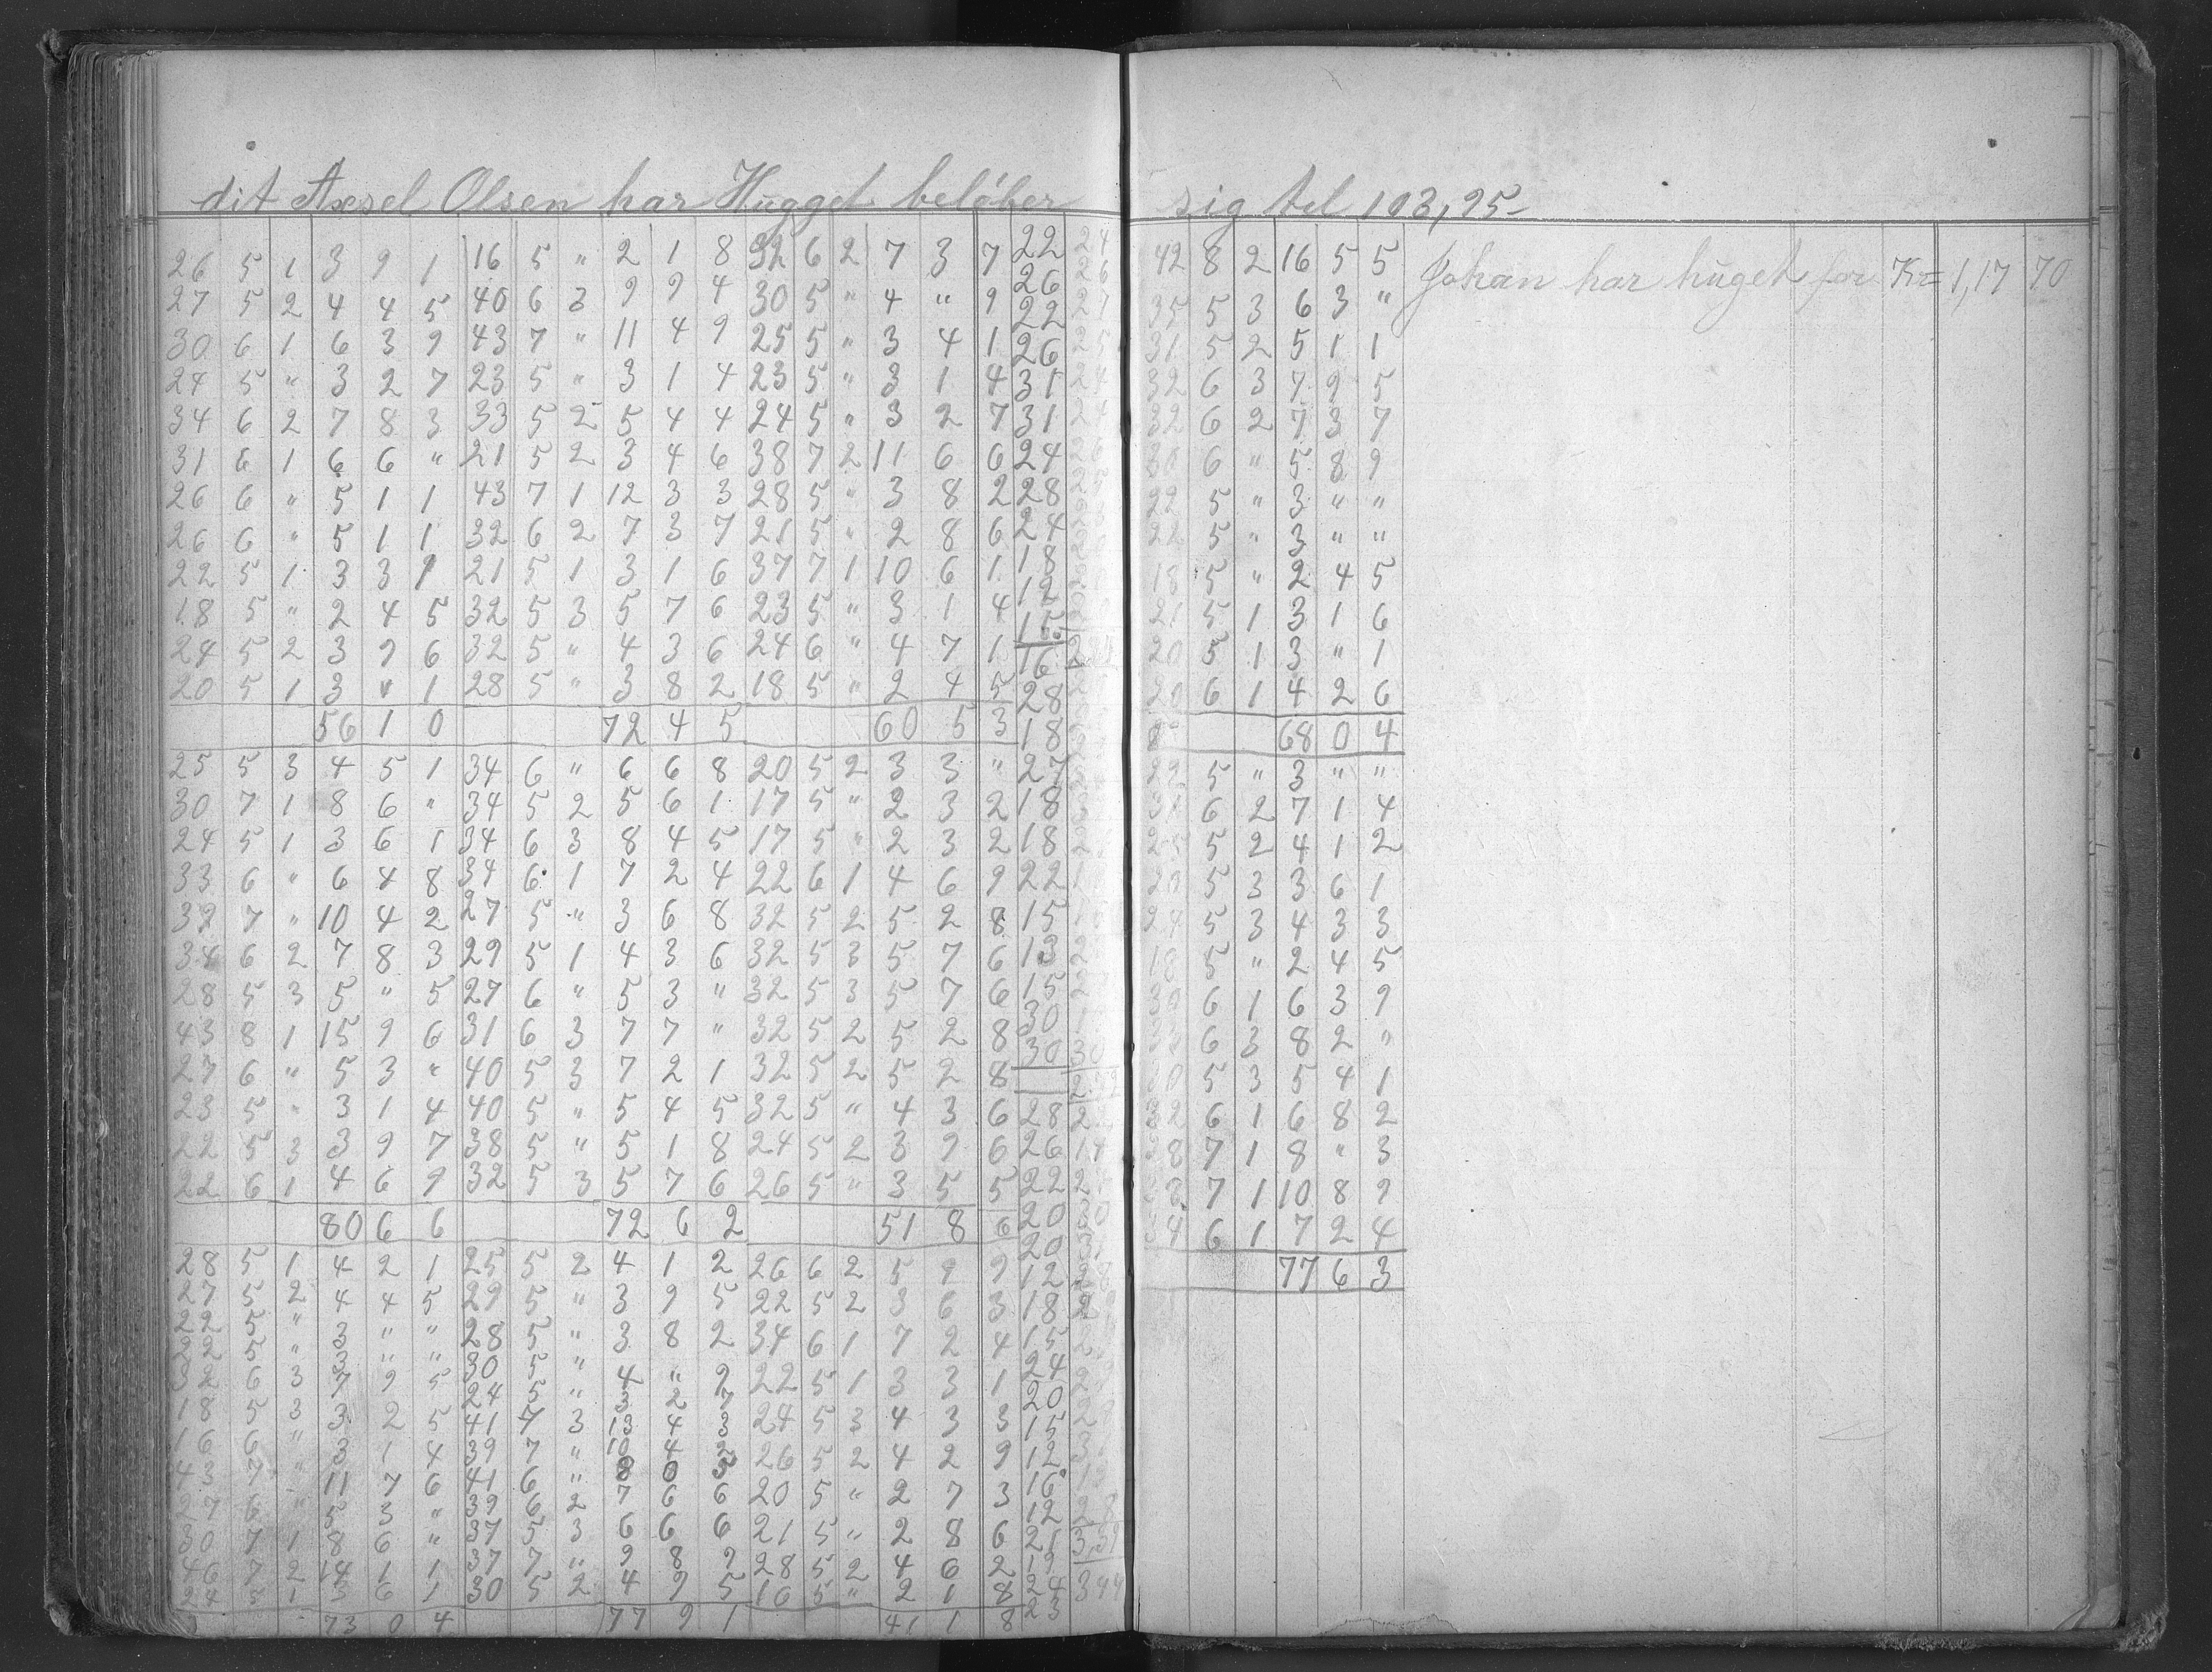 dit Axsel Olsen har Hugget beløber sig tel 103,95-
26 5 1 3 9 1 16 5 " 2 1 8 32 6 2 7 3 7 22 24
27 5 2 4 4 5 40 6 3 9 9 4 30 5 " 4 " 9 26 26
30 6 1 6 3 9 43 7 " 11 4 9 25 5 " 3 4 1 22
24 5 " 3 2 7 23 5 " 3 1 4 23 5 " 3 1 4 26
34 6 2 7 8 3 33 5 2 5 4 4 24 5 " 3 2 7 31
31 6 1 6 6 " 21 5 2 3 4 6 38 7 2 11 6 6 31
26 6 " 5 1 1 43 7 1 12 3 3 28 5 " 3 8 2 24
26 6 " 5 1 1 32 6 2 7 3 7 21 5 " 2 8 6 28
22 5 1 3 3 1 21 5 1 3 1 6 37 7 1 10 6 1 24
18 5 " 2 4 5 32 5 3 5 7 6 23 5 " 3 1 4 18
24 5 2 3 9 6 32 5 " 4 3 6 24 6 " 4 7 1 12
20 5 1 3 " 1 28 5 " 3 8 2 18 5 " 2 4 5 15
56 1 0 72 4 5 60 5 3
16
28
18
25 5 3 4 5 1 34 6 " 6 6 8 20 5 2 3 3 " 27
30 7 1 8 6 " 34 5 2 5 6 1 17 5 " 2 3 2 18
24 5 1 3 6 1 34 6 3 8 4 5 17 5 " 2 3 2 18
33 6 " 6 4 8 34 6 1 7 2 4 22 6 1 4 6 9 22
32 7 " 10 4 2 27 5 " 3 6 8 32 5 2 5 2 8 15
34 6 2 7 8 3 29 5 1 4 3 6 32 5 3 5 7 6 13
28 5 3 5 " 5 27 6 " 5 3 " 32 5 3 5 7 6 15
43 8 1 15 9 6 31 6 3 7 7 " 32 5 2 5 2 8 30
27 6 " 5 3 " 40 5 3 7 2 1 32 5 2 5 2 8 30 30
23 5 " 3 1 4 40 5 " 5 4 5 32 5 " 4 3 6 28
22 5 3 3 9 7 38 5 " 5 1 8 24 5 2 3 9 6 26 14
22 6 1 4 6 9 32 5 3 5 7 6 26 5 " 3 5 5 22
80 6 6 72 6 2 51 8 6 20
20
28 5 1 4 2 1 25 5 2 4 1 2 26 6 2 5 9 9 12
27 5 2 4 4 5 29 5 " 3 9 5 22 5 2 3 6 3 18
22 5 " 3 " " 28 5 " 3 8 2 34 6 1 7 2 4 15
22 5 " 3 " " 30 5 " 4 " 9 22 5 1 3 3 1 24
32 6 3 7 9 5 24 5 " 3 2 7 24 5 3 4 3 3 20
18 5 3 3 2 5 41 7 3 13 4 3 26 5 2 4 2 9 15
16 6 " 3 1 4 39 7 " 10 4 2 20 5 " 2 7 3 12
43 7 " 11 7 6 41 6 " 8 0 5 21 5 " 2 8 6 16
27 6 " 5 3 " 39 6 2 7 6 6 28 5 2 4 6 2 12
30 7 1 8 6 " 37 5 3 6 6 6 16 5 " 2 1 8 21
46 7 2 14 1 1 37 7 " 9 8 9 19
24 5 1 3 6 1 30 5 2 4 9 5 24
73 0 4 77 9 1 41 1 8 23
3,39
344
42 8 2 16 5 5 Johan har huget for Kr= 1,17 70
35 5 3 6 3 "
31 5 2 5 1 1
32 6 3 7 9 5
32 6 2 7 3 7
30 6 " 5 8 9
22 5 " 3 " "
22 5 " 3 " "
18 5 " 2 4 5
21 5 1 3 1 6
20 5 1 3 " 1
20 6 1 4 2 6
68 0 4
22 5 " 3 " "
31 6 2 7 1 4
25 5 2 4 1 2
20 5 3 3 6 1
24 5 3 4 3 3
18 5 " 2 4 5
30 6 1 6 3 9
6 3 8 2 "
30 5 3 5 4 1
32 6 1 6 8 2
28 7 1 8 " 3
7 1 10 8 9
34 6 1 7 2 4
77 6 3